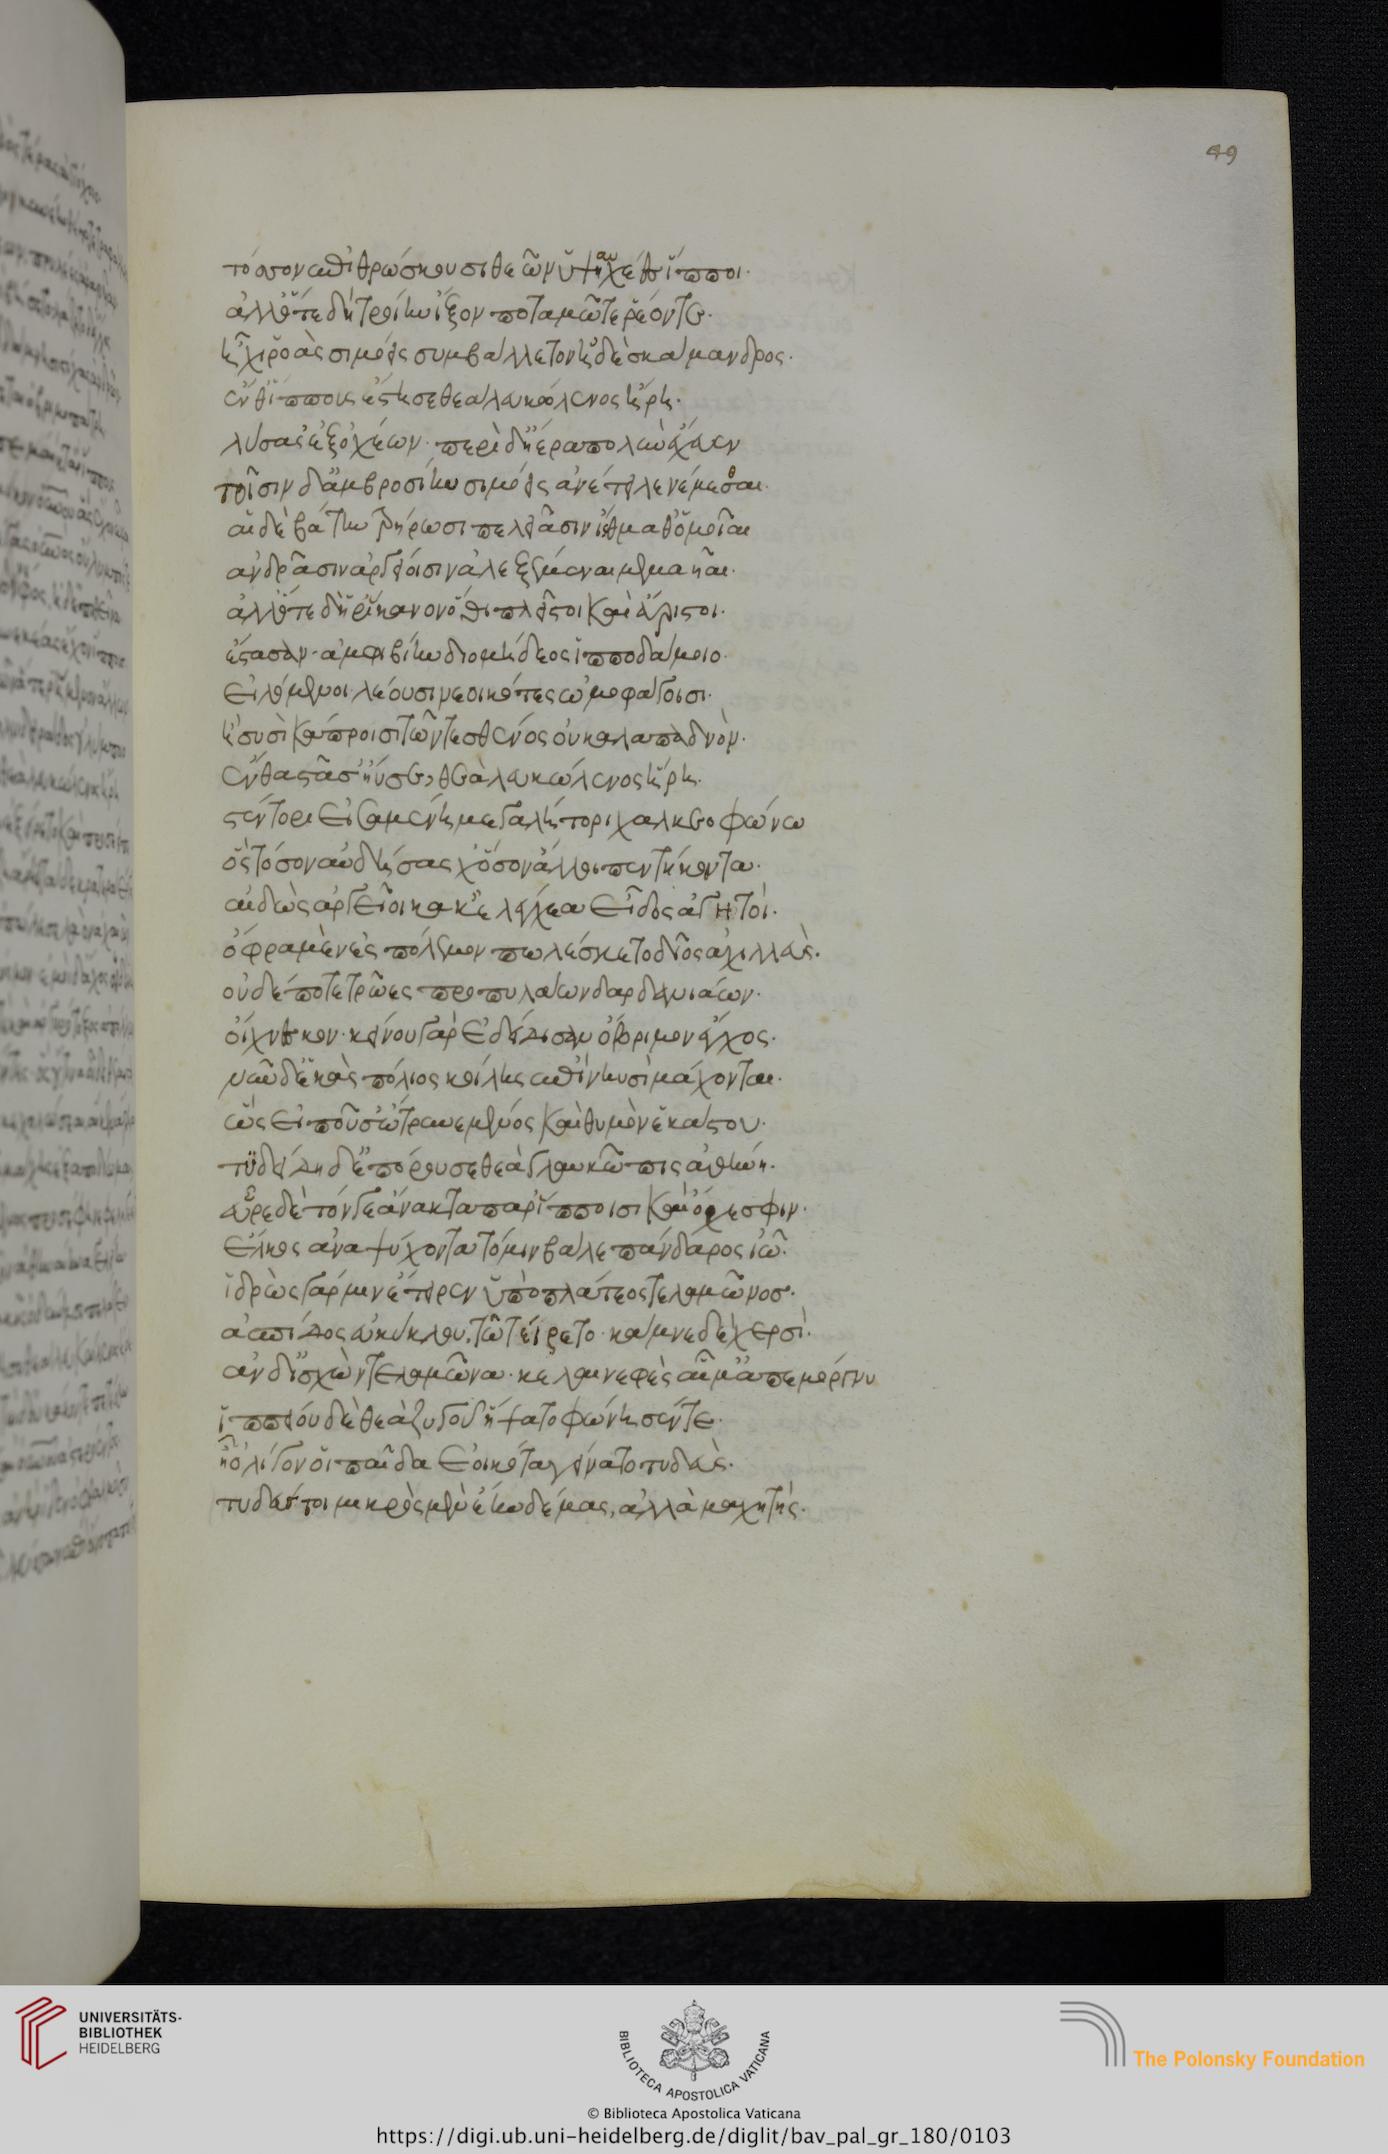 49
τόσσον ἐπιθρώσκουσι θεῶν ὑψηχέες ἵπποι.
ἀλλ' ὅτε δὴ τροίην ἷξον ποταμώ τε ῥέοντε.
ἧχι ῥοὰς σιμόεις συμβάλλετον ἠδὲ σκάμανδρος.
ἔνθ' ἵππους ἔστησε θεὰ λευκώλενος ἥρη.
λύσασ' ἐξ ὀχέων. περὶ δ' ἠέρα πολὺν ἔχευεν
τοῖσιν δ' ἀμβροσίην σιμόεις ἀνέτειλε νέμεσθαι.
αἳ δὲ βάτην τρήρωσι πελειάσιν ἴθμαθ' ὁμοῖαι
ἀνδράσιν ἀργείοισιν ἀλεξέμεναι μεμαυῖαι.
ἀλλ' ὅτε δή ῥ' ἵκανον ὅθι πλεῖστοι καὶ ἄριστοι.
ἕστασαν. ἀμφὶ βίην διομήδεος ἱπποδάμοιο.
εἰλόμενοι λέουσιν ἐοικότες ὠμοφάγοισι.
ἢ συσὶ κάπροισι τῶν τε σθένος οὐκ ἀλαπαδνόν.
ἔνθα στᾶσ' ἤυσε, θεὰ λευκώλενος ἥρη.
στέντορι εἰσαμένη μεγαλήτορι χαλκεοφώνω
ὃς τόσον αὐδήσασχ' ὅσον ἄλλοι πεντήκοντα.
αἰδὼς ἀργεῖοι κάκ' ἐλέγχεα εἶδος ἀγητοί.
ὄφρα μὲν ἐς πόλεμον πωλέσκετο δῖος ἀχιλλεύς.
οὐδέ ποτε τρῶες προπυλάων δαρδανιάων.
οἴχνεσκον. κείνου γὰρ ἐδείδισαν ὄβριμον ἔγχος.
νῦν δὲ ἑκὰς πόλιος κοίλης ἐπὶ νηυσὶ μάχονται.
ὣς εἰποῦσ' ὤτρυνε μένος καὶ θυμὸν ἑκάστου.
τυδείδη δ' ἐπόρουσε θεὰ γλαυκῶπις ἀθήνη.
εὗρε δὲ τόν γε ἄνακτα παρ' ἵπποισι καὶ ὄχεσφιν.
ἕλκος ἀναψύχοντα τό μιν βάλε πάνδαρος ἰῶ.
ἱδρὼς γάρ μιν ἔτειρεν ὑπὸ πλατέος τελαμῶνος.
ἀσπίδος εὐκύκλου. τῶ τείρετο. κάμνε δὲ χερσὶ.
ἂν δ' ἴσχων τελαμῶνα. κελαινεφὲς αἷμ' ἀπεμόργνυ
ἱππείου δὲ θεὰ ζυγοῦ ἥψατο φώνησέν τε.
ἦ ὀλίγον οἷ παῖδα ἐοικότα γείνατο τυδεύς.
τυδεύς τοι μικρὸς μὲν ἔην δέμας, ἀλλὰ μαχητής.
UNIVERSITÄTS-
BIBLIOTHEK
HEIDELBERG
BIBLIOTECA APOSTOLICA VATICANA
The Polonsky Foundation
© Biblioteca Apostolica Vaticana
https://digi.ub.uni-heidelberg.de/diglit/bav_pal_gr_180/0103